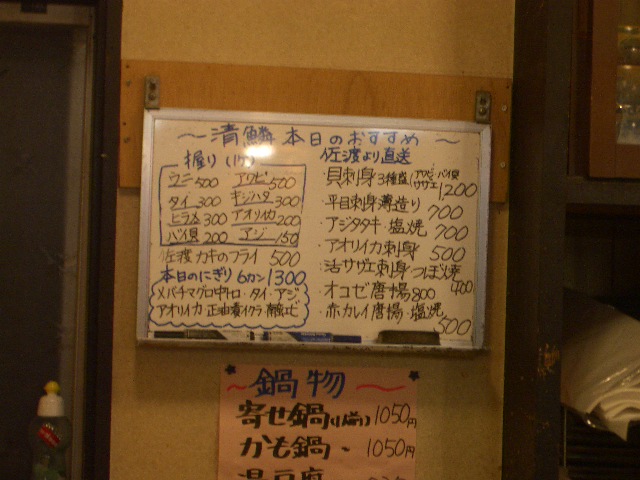 〜清鱗 本日のおすすめ〜
握り(1ケ)
ウニ500 アワビ500
タイ300 キジハタ300
ヒラメ300 アオリイカ200
バイ貝200 アジ150
佐渡カキのフライ 500
本日のにぎり 6カン1300
メバチマグロ中トロ・タイ・アジ
アオリイカ 正油漬イクラ 南蛮エビ
佐渡より直送
・貝刺身 3種盛(アワビ・バイ貝 サザエ 1,200
・平目刺身 薄造り 700
・アジタタキ・塩焼 700
・アオリイカ刺身 500
・活サザエ刺身・つぼ焼 400
・オコゼ唐揚 800
・赤カレイ唐揚・塩焼 500
〜鍋物〜
寄せ鍋(1人前) 1050円
かも鍋・ 1050円
湯豆腐